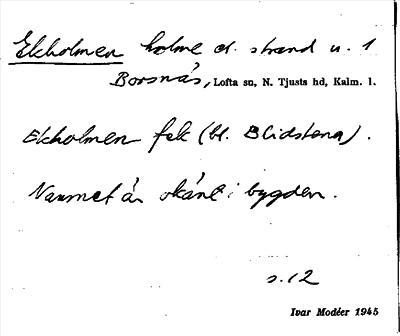 Ekholmen holme el. strand u. 1
Borsnäs, Lofta sn, N. Tjusts hd, Kalm. l.
Ekholmen fsk (bl. Blidstena).
Namnet är okänt i bygden.
s. 12
Ivar Modéer 1945